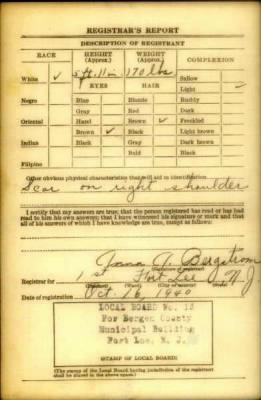 REGISTRAR'S REPORT
DESCRIPTION OF REGISTRANT
RACE HEIGHT (Approx.) WEIGHT (Approx.) COMPLEXION
5 ft. 11 in. 170 lbs.
White ✓ Sallow
EYES HAIR Light ✓
Negro Blue Blonde Ruddy
Gray Red Dark
Oriental Hazel Brown ✓ Freckled
Brown ✓ Black Light brown
Indian Black Gray Dark brown
Bald Black
Filipino
Other obvious physical characteristics that will aid in identification
Scar on right shoulder
I certify that my answers are true; that the person registered has read or has had
read to him his own answers; that I have witnessed his signature or mark and that
all of his answers of which I have knowledge are true, except as follows:
J. Bergstrom
(Signature of registrar)
Registrar for 1st Fort Lee N. J.
(Precinct) (Ward) (City or county) (State)
Date of registration Oct. 16, 1940
LOCAL BOARD No. 15
For Bergen County
Municipal Building
Fort Lee, N. J.
(STAMP OF LOCAL BOARD)
(The stamp of the Local Board having jurisdiction of the registrant
shall be placed in the above space.)